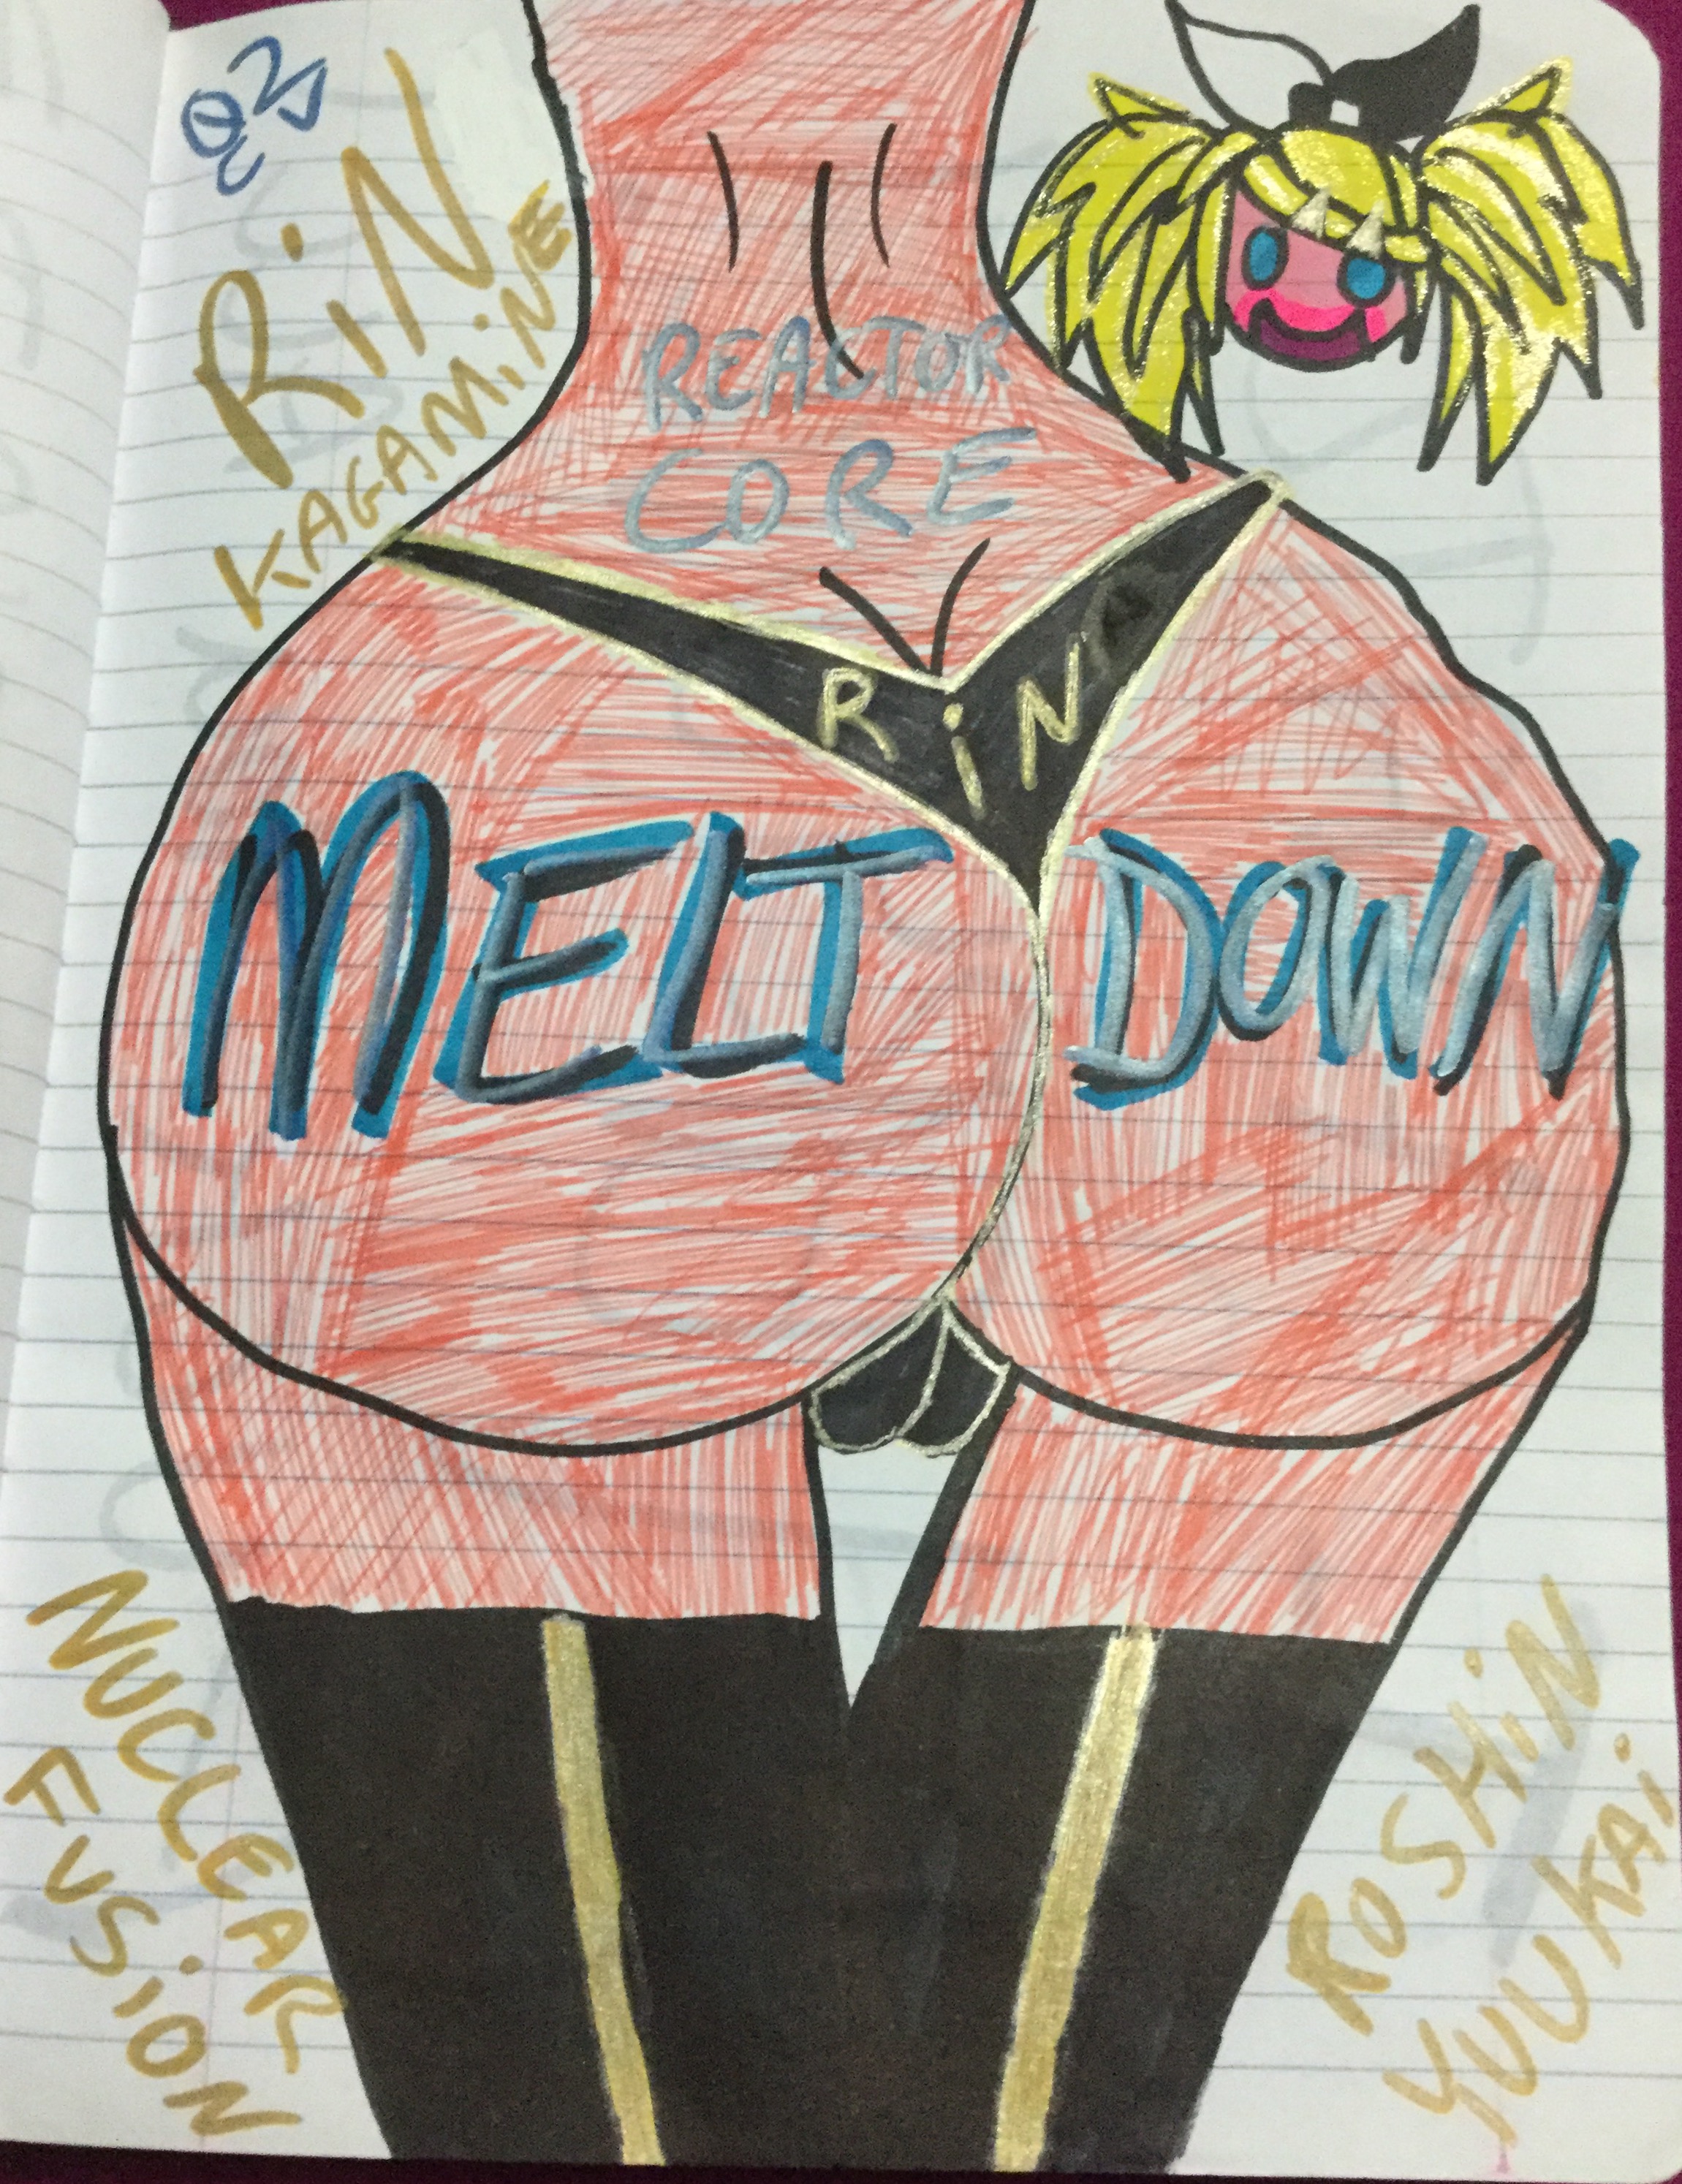 RiN
KAGAMiNE
REACTOR
CORE
RiN
MELT DOWN
NUCLEAR
FUSiON
ROSHiN
YUUKAi